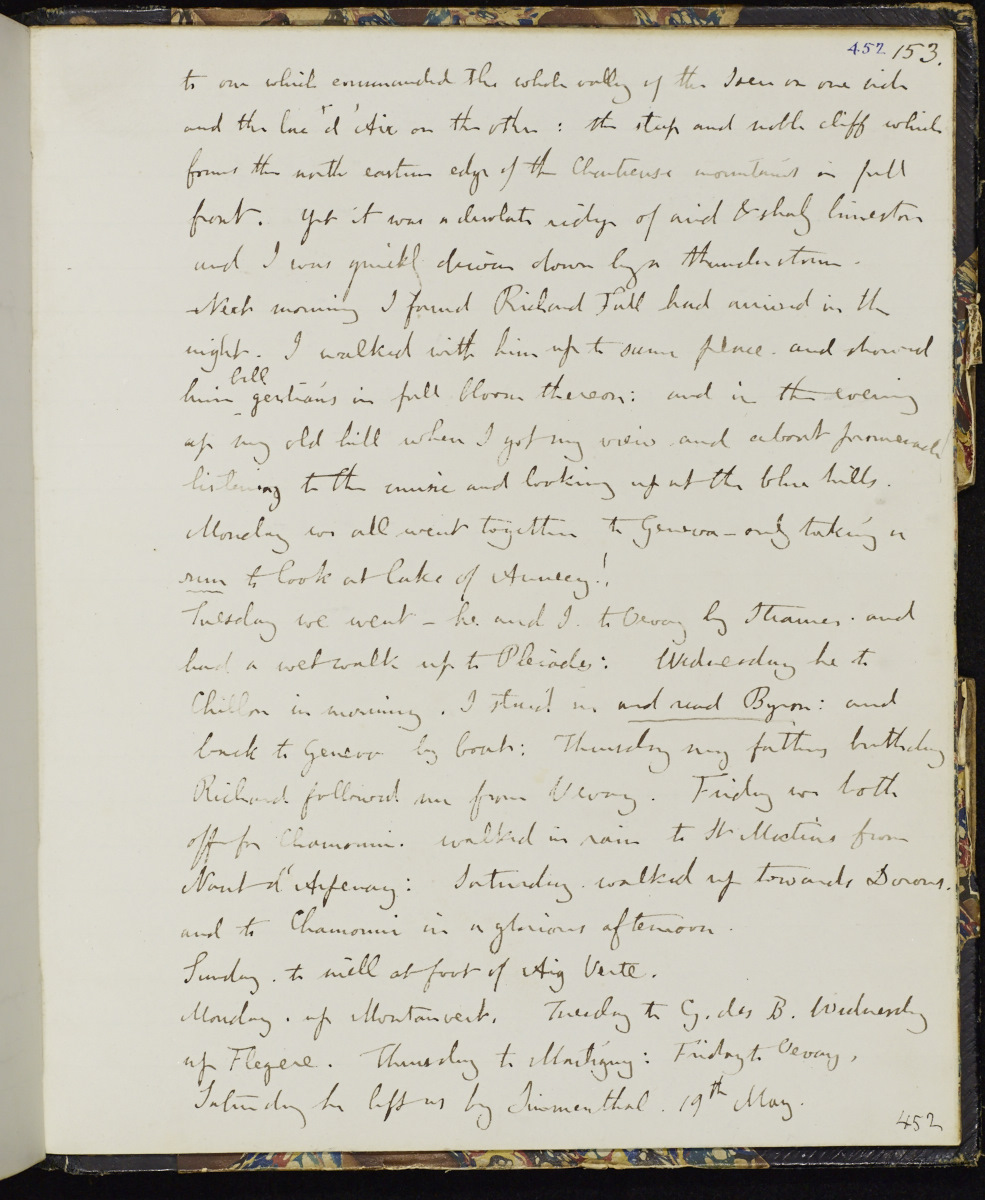 452 153.
to one which commanded the whole valley of the Isere on one side
and the lac d'Aix on the other : the steep and noble cliff which
forms the north eastern edge of the Chartreuse mountains in full
front. Yet it was a desolate ridge of arid & shaly limestone
and I was quickly driven down by a thunderstorm.
Next morning I found Richard Fall had arrived in the
night. I walked with him up to same place. and showed
him bell gentians in full bloom thereon: and in the evening
up my old hill where I got my view and about promenade
listening to the music and looking up at the blue hills.
Monday we all went together to Geneva - only taking a
run to look at lake of Annecy!.
Tuesday we went - he and I. to Vevay by Steamer. and
had a wet walk up to Pleiades: Wednesday he to
Chillon in morning. I staid in and read Byron: and
back to Geneva by boat: Thursday my fathers birthday
Richard followed me from Vevay. Friday we both
off for Chamouni. walked in rain to St Martins from
Nant d'Arpenay: Saturday. walked up towards Dorons.
and to Chamouni in a glorious afternoon.
Sunday. to mill at foot of Aig Verte.
Monday. up Montanvert. Tuesday to G. des B. Wednesday
up Flegere. Thursday to Martigny: Friday to Vevay,
Saturday he left us by Simmenthal. 19th May.
452